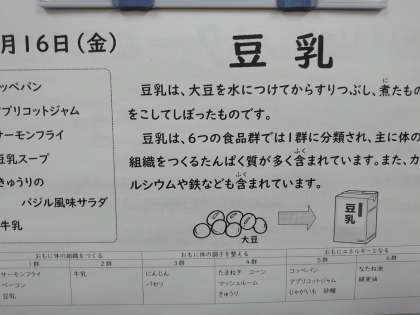 月16日(金)
豆乳
コッペパン
アプリコットジャム
サーモンフライ
豆乳スープ
きゅうりの
バジル風味サラダ
牛乳
豆乳は、大豆を水につけてからすりつぶし、煮たもの
をこしてしぼったものです。
豆乳は、6つの食品群では1群に分類され、主に体の
組織をつくるたんぱく質が多く含まれています。また、カ
ルシウムや鉄なども含まれています。
豆乳
大豆
おもに体の組織をつくる おもに体の調子を整える おもにエネルギーとなる
1群 2群 3群 4群 5群 6群
サーモンフライ 牛乳 にんじん たまねぎ コーン コッペパン なたね油
ベーコン パセリ マッシュルーム アプリコットジャム 綿実油
豆乳 きゅうり じゃがいも 砂糖